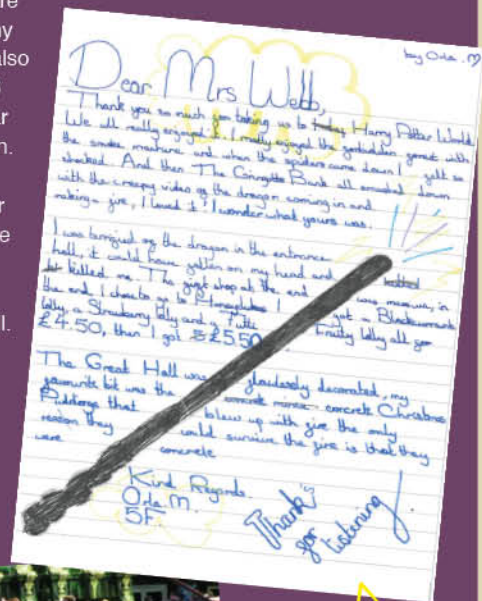 re
ny
also
s
ar
n.
r
e
l.
by Orla. ♡
Dear Mrs Webb,
Thank you so much for taking us to Harry Potter World
We all really enjoyed it. I really enjoyed the forbidden forest with
the smoke machine and when the spiders came down I felt so
shocked. And then The Gringotts Bank all down
with the creepy video of the dragon coming in and
making fire, I loved it! I wonder what yours was.
I was terrified of the dragon in the entrance
hall, it would have fallen on my head and
killed me. The gift shop at the end was massive, in
the end, I to go to I got a Blackcurrant
lolly, a Strawberry lolly and a Tutti Fruitty lolly all for
£4.50, then I got £5.50
The Great Hall was decorated, my
favourite bit was the concrete concrete Christmas
Puddings that blew up with fire the only
reason they could survive the fire is that they
were concrete
Kind Regards.
Orla M.
5F.
Thank's
for listening!